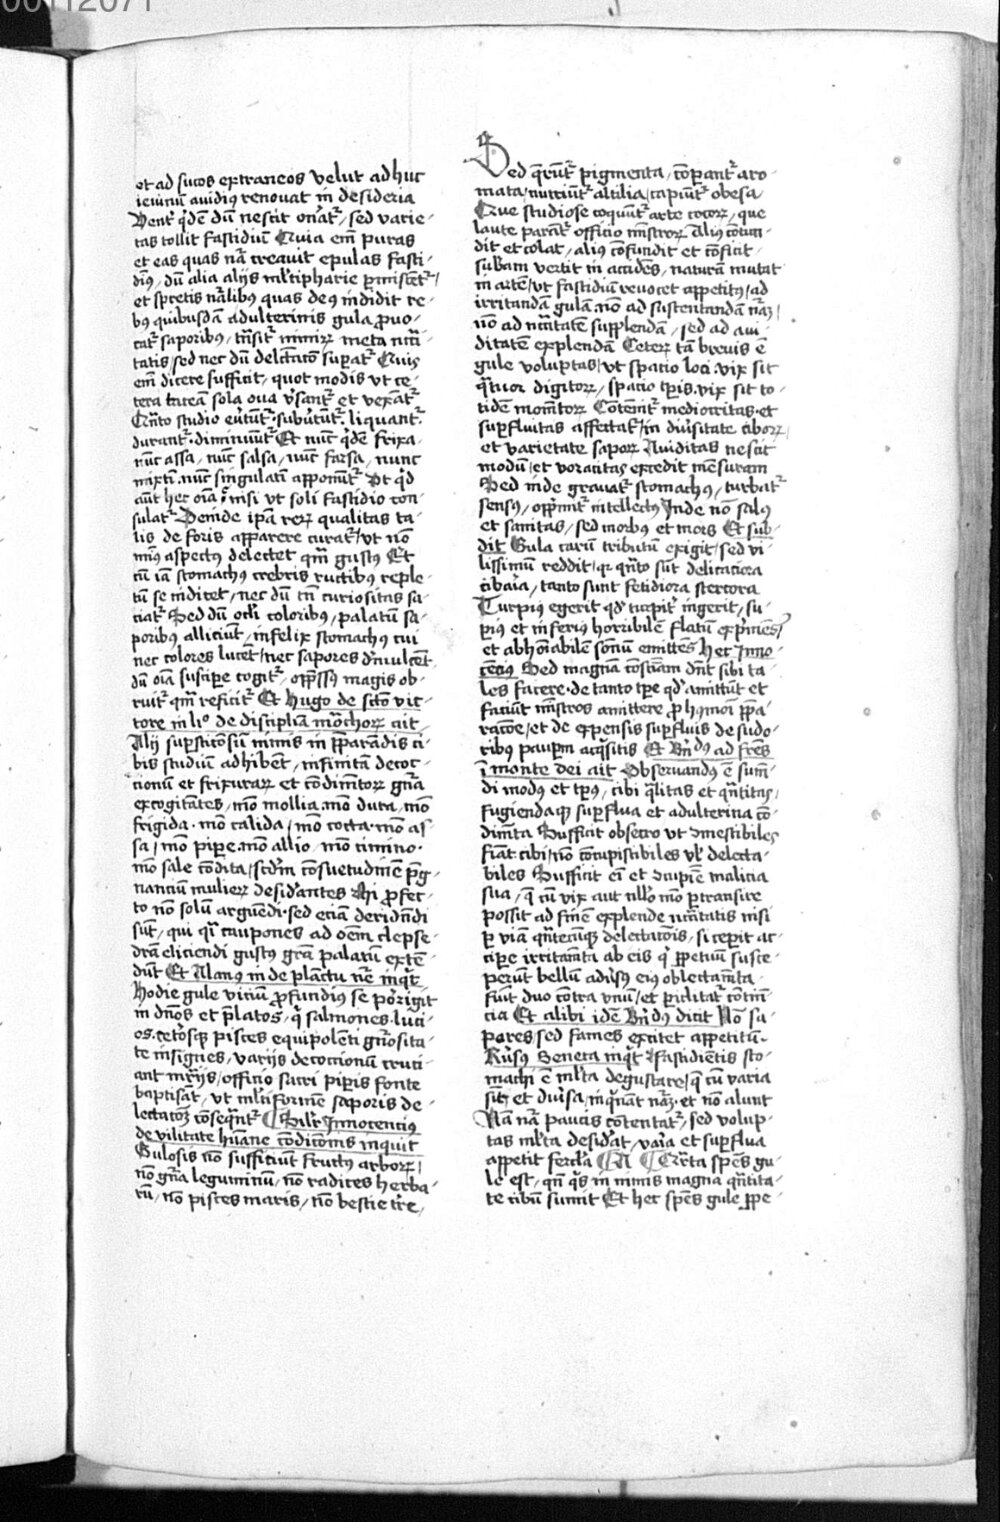 00112071
et ad sucos extraneos velut adhuc
ieiuniū auidiꝰ renouat in desideria
Ventˀ qͥdē dū nescit onatˀ / sed varie-
tas tollit fastidiū Quia em̄ puras
et eas quas nā creauit epulas fasti-
diꝰ / dū alia alijs mltipharie pmiscētˀ /
et spretis nālibꝰ quas deꝰ indidit re-
bꝰ quibusdā adulterinis gula ꝓuo-
catˀ saporibꝰ / tnsitˀ nimiꝝ meta ncci-
tatis / sed nec dū delctatō supatˀ Quis
em̄ dicere sufficit / quot modis vt ce-
tera taceā sola oua vsantˀ et vexātˀ
Qnto studio eutūtˀ · subutūtˀ · liquantˀ
durantˀ · diminuūtˀ Et nūc qͥdē frixa-
nūc assa / nūc salsa / nūc farsa / nunc
mixti · nūc singulati apponūtˀ Vt qͥd
aūt hec oīa ī nisi vt soli fastidio con-
sulatˀ Deinde ipā reꝝ qualitas ta-
lis de foris apparere curatˀ / vt nō
minꝰ aspectꝰ delectet qm̄ gustꝰ Et
cū iā stomachꝰ crebris ructibꝰ reple-
tū se indicet / nec dū tn̄ curiositas sa-
ciatˀ Sed dū oculi coloribꝰ / palatū sa-
poribꝰ alliciūt / infelix stomachꝰ cui
nec colores lucēt / nec sapores dmulcēt
dū oīa suscipe cogitˀ / opp̄ssꝰ magis ob-
ruitˀ qm̄ reficitˀ Et hugo de scto vic-
tore in li° de disciplīa mōchoꝝ ait
Alij supsticosū nimis in pparādis ci-
bis studiū adhibēt / infinitā decoc-
cionū et frixuraꝝ et cōdimētoꝝ gnā
excogitātes / mō mollia · mō dura / mō
frigida · mō calida / mō cocta · mō as-
sa / mō pipe · mō allio / mō cimino ·
mō sale cōdita / scdm̄ cōsuetudinē p̄g-
nanciū mulieꝝ desidantes Hi ꝓfec-
to nō solū arguēdi · sed eciā deridn̄di
sūt / qui qͣ caupones ad oēm clepse-
drā eliciendi gustꝰ grā palatū extē-
dūt Et Alanus in de planctu nē inqͥt
Hodie gule viciū ꝓfundiꝰ se porrigit
in dn̄os et p̄latos / qͥ salmones · luci-
os · cetosqꝫ pisces equipolēti gnositu-
te insignes / varijs decoccionū cruci-
ant mrijs / officio sacri pipis fonte
baptisāt / vt mltiformē saporis de-
lectatōꝫ cōseqntˀ ¶ Silr Innocencius
de vilitate hūane cōdicōnis inquit
Gulosis nō sufficiūt fructꝰ arboꝝ /
nō gnā leguminū / nō radices herba-
rū / nō pisces maris / nō bestie tre /
Sed qrūtˀ pigmenta / cōpantˀ aro-
mata / nutriūtˀ altilia / capiūtˀ obesa
Que studiose coquūtˀ arte cocoꝝ / que
laute parātˀ officio mnstroꝝ Aliꝰ cōtun-
dit et colat / aliꝰ cōfundit et cōficit /
subām vertit in accidēs / naturā mutat
in artē / vt fastidiū reuocet appetitꝰ / ad
irritandā gulā · nō ad sustentandā nāꝫ /
nō ad nccitatē supplendā / sed ad aui-
ditatē explendā Ceteꝝ tā breuis ē
gule voluptas / vt spacio loci · vix sit
qtuor digitoꝝ / spacio tpis · vix sit to-
tidē momētoꝝ Cōtēnitˀ mediocritas · et
supfluitas affectatˀ / in diusitate ciboꝝ
et varietate sapoꝝ Auiditas nescit
modū / et voracitas excedit mēsuram
Sed inde grauatˀ stomachꝰ / turbatˀ
sensꝰ / oppmitˀ intellectꝰ Inde nō salꝰ
et sanitas / sed morbꝰ et mors Et sub-
dit Gula carū tributū exigit / sed vi-
lissimū reddit / qꝛ qnto sūt delicaciora
cibaīa / tanto sunt fetidiora stercora
Turpiꝰ egerit qd turpitˀ ingerit / su-
piꝰ et inferiꝰ horribilē flatū expmēs
et abhoīabilē sonū emittēs hec Inno-
cēciꝰ Sed magnā cōsciam dnt sibi ta-
les facere · de tanto tpe qd amittūt et
faciūt mnstros amittere ꝓ hꝰmoi ppa-
racōe / et de expensis supfluis de sudo-
ribꝰ paupm acqsitis Et Bn̄dꝰ ad frēs
ī monte dei ait Obseruandꝰ ē sum̄-
di modꝰ et tpꝰ / cibi qlitas et qntitas /
fugiendaqꝫ supflua et adulterina cō-
dimta Sufficiat obsecro vt ꝯmestibiles
fiāt · cibi / nō cōcupiscibiles vl delecta-
biles Sufficit eī et ꝯcupiē malicia
sua / q̄ cū vix aut nllo mō ptransire
possit ad finē explende nccitatis nisi
p viā qntecūqꝫ delectacōis / si cepit ac-
cipe irritamta ab eis q ppetuū susce-
perūt bellū adusꝰ eiꝰ oblectamta ·
fiūt duo cōtra vnū / et piclitatˀ cōtin-
cia Et alibi idē Bn̄dꝰ dicit Nō sa-
pores / sed fames excitet appetitū ·
Rursꝰ Seneca inqͥt Fastidiētis sto-
machi ē mlta degustare / q cū varia
sīt / et diusa / inqnāt nāꝫ · et nō alunt
Nā nā paucis cōtentatˀ / sed volup-
tas mlta desidat / vaīa et supflua
appetit fercla ¶ Qrta spēs gu-
le est / qn̄ qͥs in nimis magna qntita-
te cibū sumit Et hec spēs gule ppe-